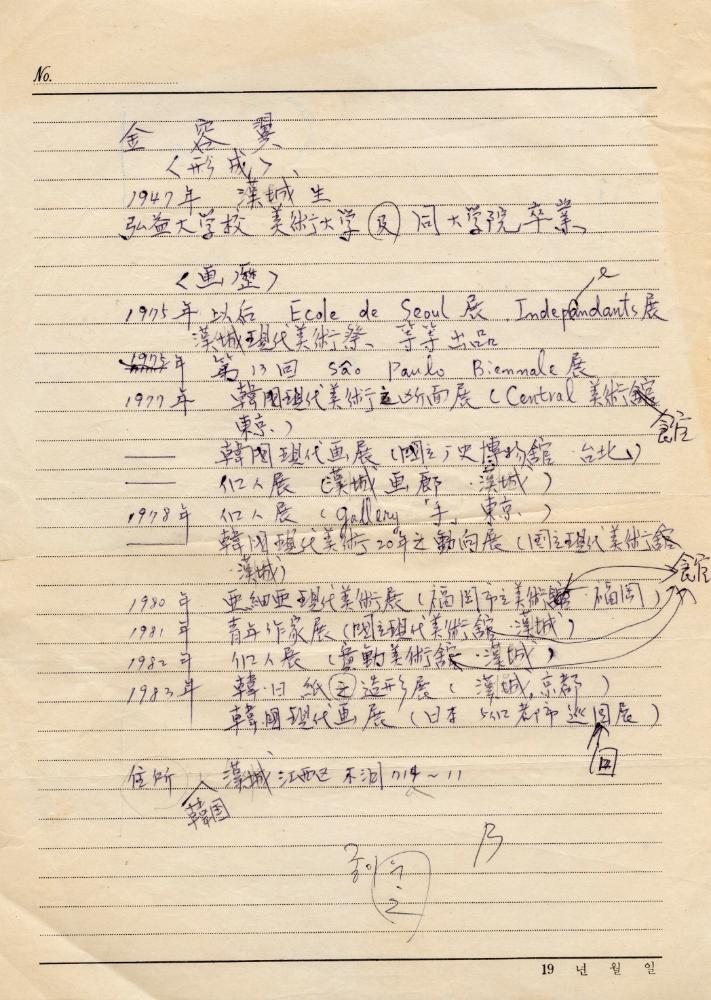 No.
金 容 翼
<形成>
1947年 漢城 生
弘益大学校 美術大学 及 同大学院 卒業
<画歴>
e
1975年 以后 Ecole de Seoul 展 . Independants 展
漢城現代美術祭、等等 出品
1975年 第13回 são Paulo Biennale 展
1977年 韓國現代美術之断面展 (Central 美術館
東京.)
館
韓國現代画展 (國立 史博物館 . 台北)
個人展 (漢城画廊 . 漢城)
1978年 個人展 (gallery 「手」 東京.)
韓國現代美術20年之動向展 (国立現代美術館
漢城)
館
1980年 亜細亜現代美術展 (福岡市立美術館 . 福岡)
1981年 青年作家展 (國立現代美術館 . 漢城)
1982年 個人展 ( 動美術館 . 漢城)
1983年 韓.日 紙之造形展 ( 漢城, 京都 )
韓國現代画展 (日本 5個都市 巡回展)
回
住所 漢城 江西区 木洞 714~11
韓国
19 년 월 일